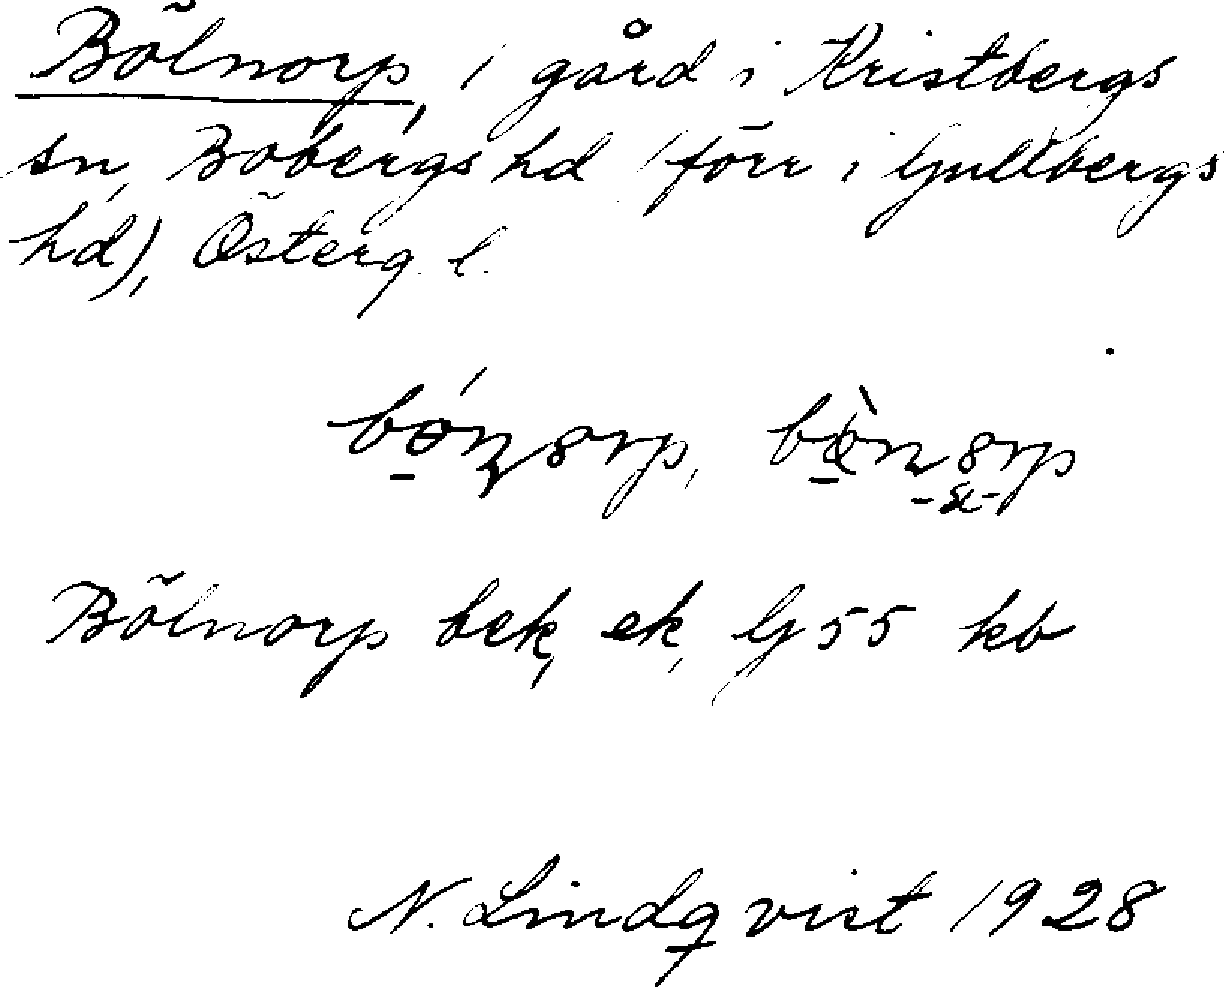 Bölnorp, 1 gård i Kristbergs
sn, Bobergs hd (förr i Gullbergs
hd), Österg. l.
Bölnorp bek, ek, G 55 kb
N. Lindqvist 1928